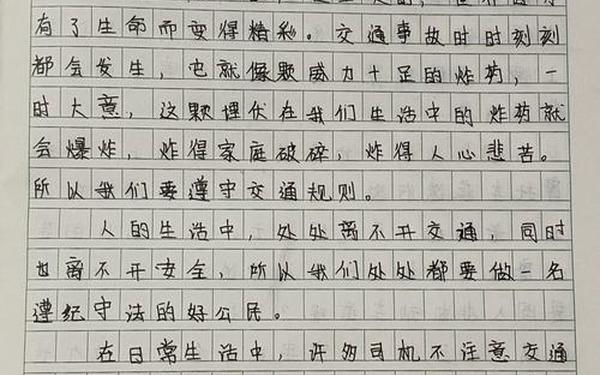 有了生命而变得精彩。交通事故时时刻刻
都会发生，也就像颗威力十足的炸药，一
时大意，这颗埋伏在我们生活中的炸药就
会爆炸，炸得家庭破碎，炸得人心悲苦。
所以我们要遵守交通规则。
人的生活中，处处离不开交通，同时
也离不开安全，所以我们处处都要做一名
遵纪守法的好公民。
在日常生活中，许多司机不注意交通